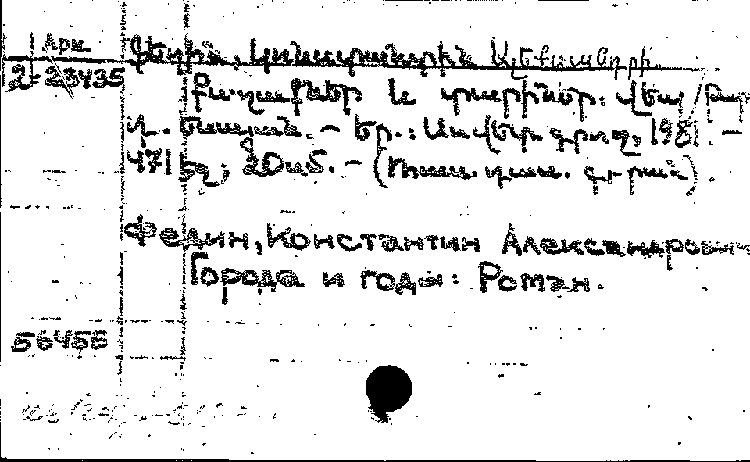 Арм
2-23435
Ֆեդին, Կոնստանտին Ալեքսանդրի.
Քաղաքներ և տարիներ: Վեպ / Թարգ
Եր.: Սովետ. գրող, 1981. –
471 էջ; 20 սմ. – (Ռուս. դաս. գրակ)
Федин, Константин Александрович
Города и годы: Роман.
56466